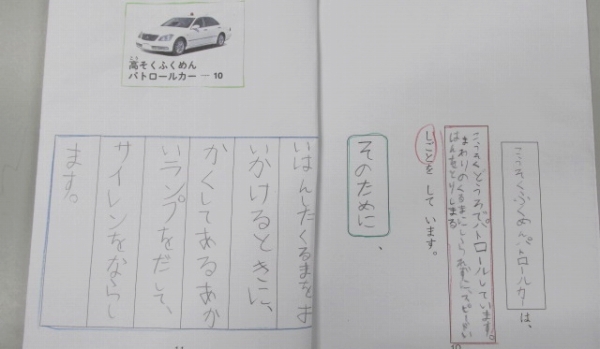 こうそくふくめんパトロールカー は、
こうそくどうろでパトロールしています。
まわりのくるまにしられずにスピードい
はんをとりしまる
しごとを して います。
そのために 、
高そくふくめん
パトロールカー ― 10
いはんしたくるまをお
いかけるときに、
かくしてあるあか
いランプをだして、
サイレンをならし
ます。
10